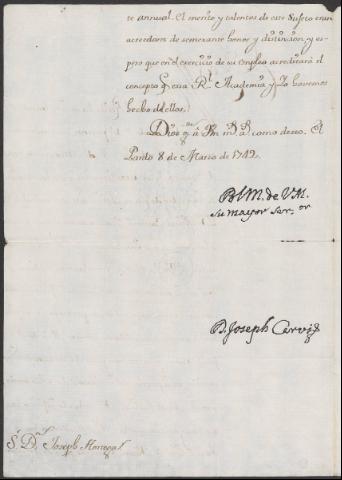 te annual. El merito y talentos de este Sujeto eran
acreedores de semexante honor y distinzion, y es-
pero que en el exercicio de su empleo acreditará el
concepto q̃ esa Rl. Academia y Yo havemos
hecho de ellos.
Dios gue. á Vm. ms. as. como deseo. El
Pardo 8 de Marzo de 1742.
BLM. de VM.
su mayor Ser.or
D. Joseph
Sr. Dn. Joseph